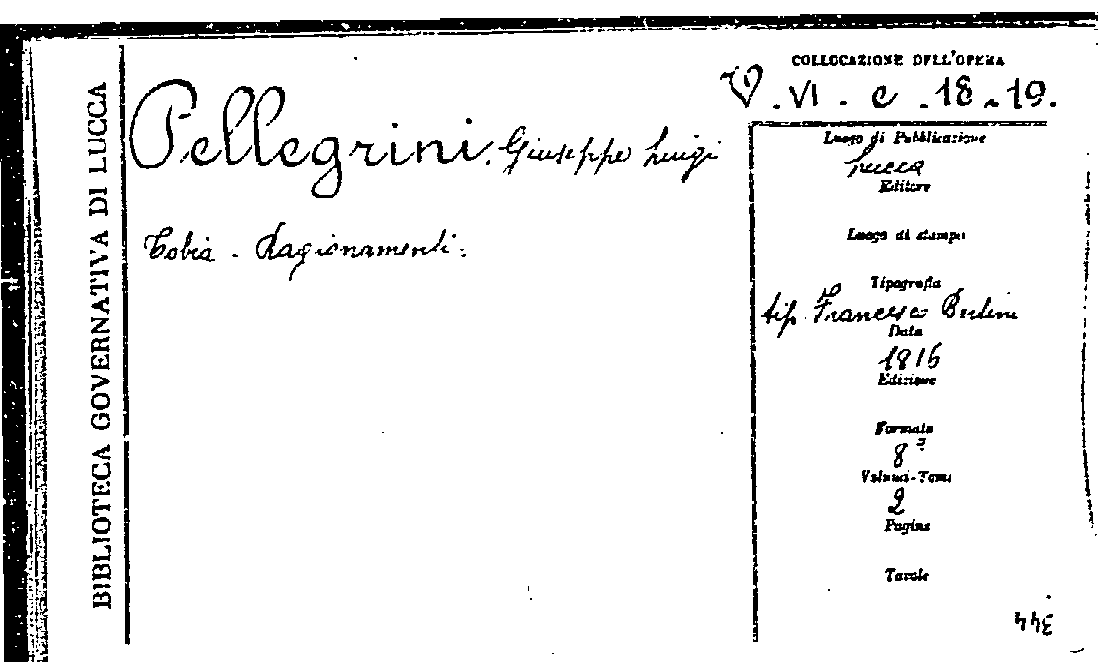 BIBLIOTECA GOVERNATIVA DI LUCCA
Pellegrini, Giuseppe Luigi
Tobia - Ragionamenti.
COLLOCAZIONE DELL'OPERA
V. VI. c. 18-19.
Luogo di Pubblicazione
Lucca
Editore
Luogo di stampa
Tipografia
tip. Francesco Bertini
Data
1816
Edizione
Formato
8°
Volumi-Tomi
2
Pagine
Tavole
344